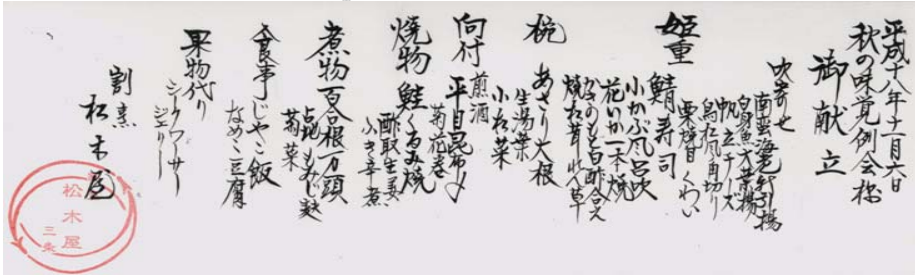 平成十八年十一月六日
秋の味覚例会様
御献立
吹寄せ
南蛮海老新引揚
白身魚大葉揚
帆立チーズ
鳥松風角切り
栗蜂目 くわい
姫重
鯖寿司
小かぶ風呂吹
花いか一本焼
かきのもと白酢合え
焼松茸 れん草
椀
あさり大根
生湯葉
小松菜
向付
煎酒
平目昆布〆
菊花巻
焼物 鮭くるみ焼
酢取生姜
ふき辛煮
煮物 百合根万頭
占地 もみじ麩
菊菜
食事 じゃこ飯
なめこ豆腐
果物代り
シークワーサー
ジェリー
割烹
松木屋
松木屋
三条